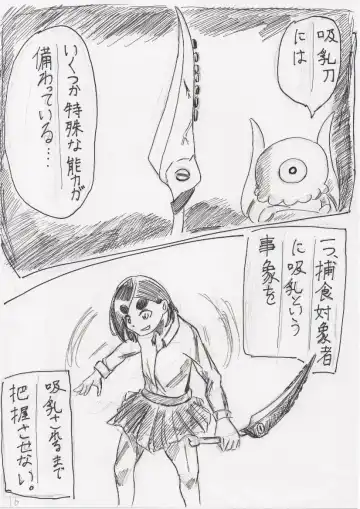 吸乳刀
には
いくつか特殊な能力が
備わっている…
一、捕食対象者
に吸乳という
事象を
吸乳さるるまで
把握させない。
16